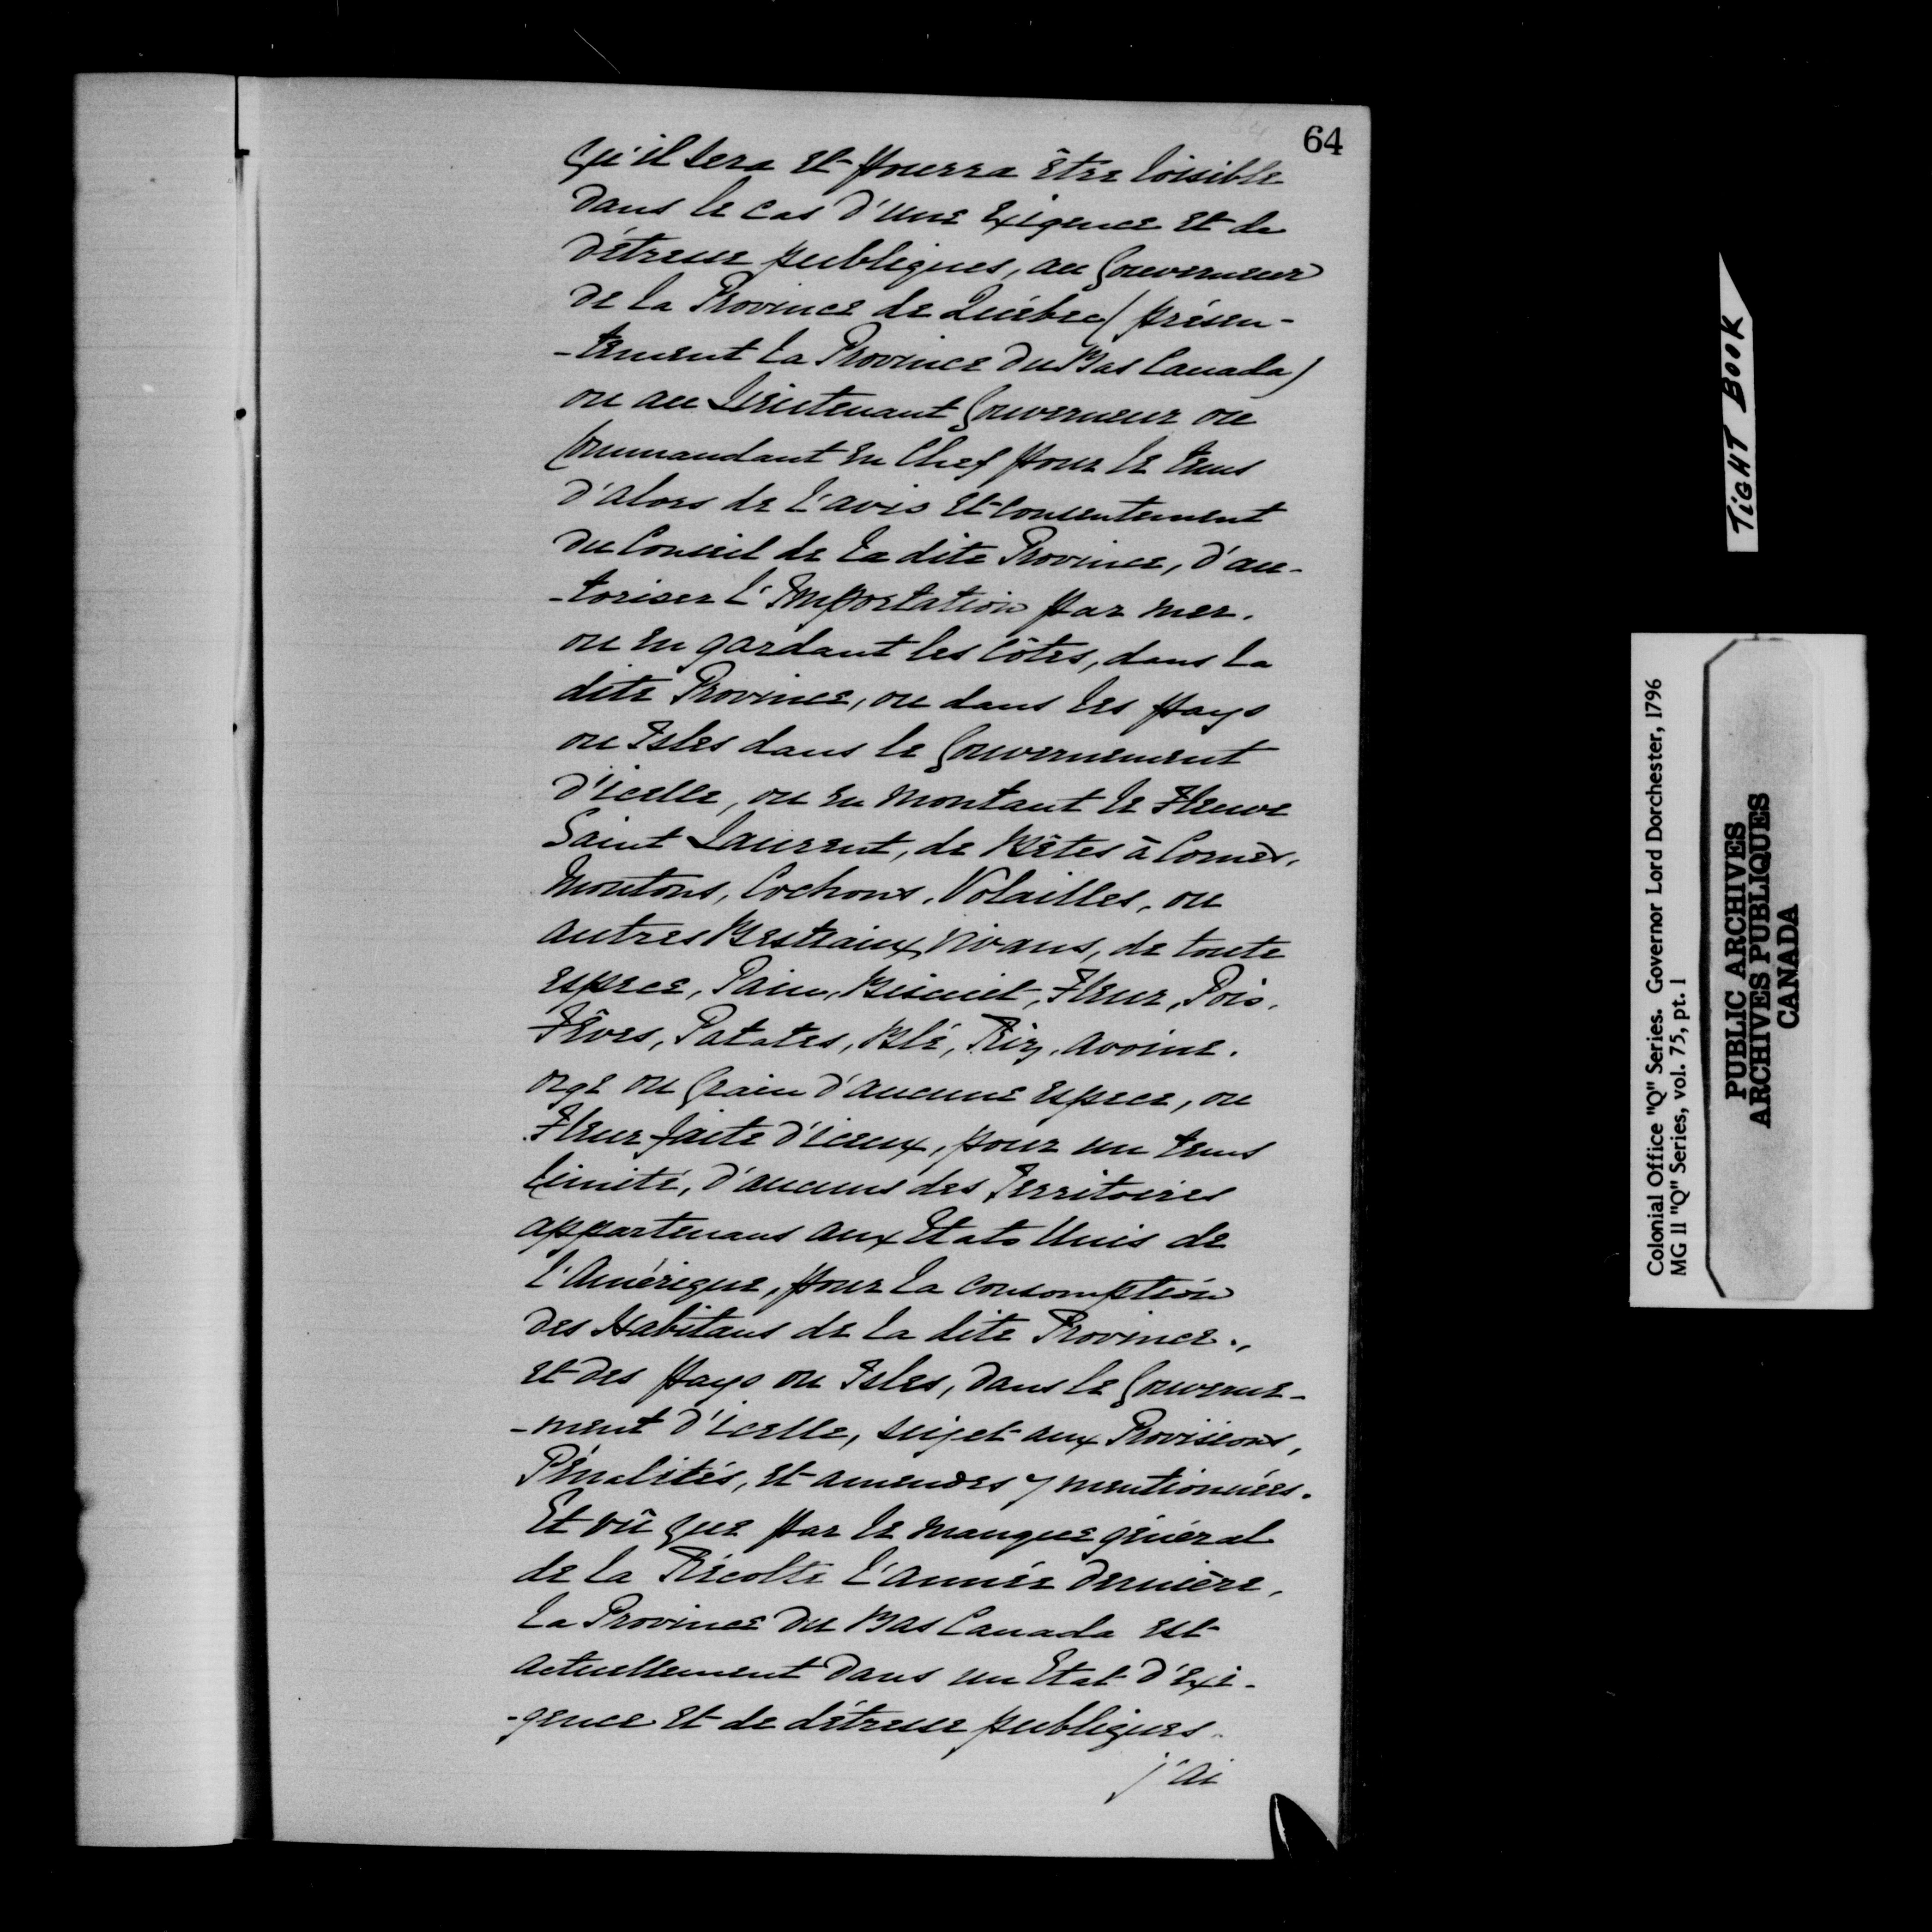 64
qu'il sera et pourra être loisible
dans le cas d'une exigence et de
détresse publiques, au Gouverneur
de la Province de Québec (présen-
-tement la Province du Bas Canada)
ou au Lieutenant Gouverneur ou
Commandant en Chef pour le tems
d'alors de l'avis et consentement
du Conseil de la dite Province, d'au-
-toriser l'Importation par mer.
ou en gardant les côtes, dans la
dite Province, ou dans les pays
ou Isles dans le Gouvernement
d'icelle, ou en montant le Fleuve
Saint Laurent, de Bêtes à Cornes,
Moutons, Cochons, Volailles, ou
autres Bestiaux vivans, de toute
espece, Pain, Biscuit, Fleur, Pois,
Fêves, Patates, Blé, Riz, avoine.
orge ou Grain d'aucune espece, ou
Fleur faite d'iceux, pour un tems
limité, d'aucuns des Territoires
appartenans aux Etats Unis de
l'Amérique, pour la consomption
des Habitans de la dite Province.,
et des pays ou Isles, dans le Gouverne-
-ment d'icelle, sujet aux Provisions,
Pénalités, et amendes y mentionnées.
Et vû que par le manque général
de la Récolte l'année dernière,
la Province du Bas Canada est
actuellement dans un Etat d'exi-
-gence et de détresse publiques.
j'ai
TIGHT BOOK
Colonial Office "Q" Series. Governor Lord Dorchester, 1796
MG 11 "Q" Series, vol. 75, pt. 1
PUBLIC ARCHIVES
ARCHIVES PUBLIQUES
CANADA